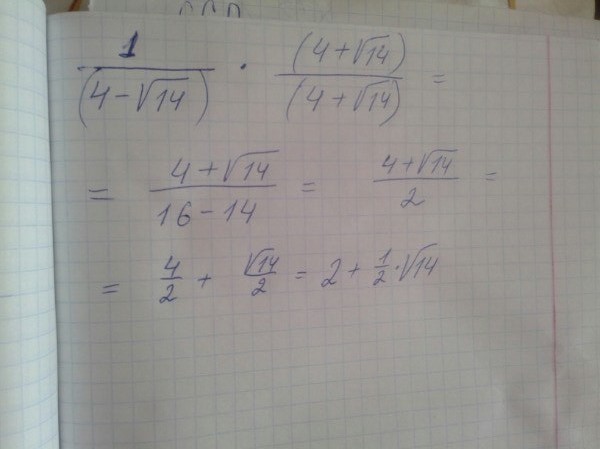 1/(4-√14) · (4+√14)/(4+√14) =
= (4+√14)/(16-14) = (4+√14)/2 =
= 4/2 + √14/2 = 2 + 1/2·√14